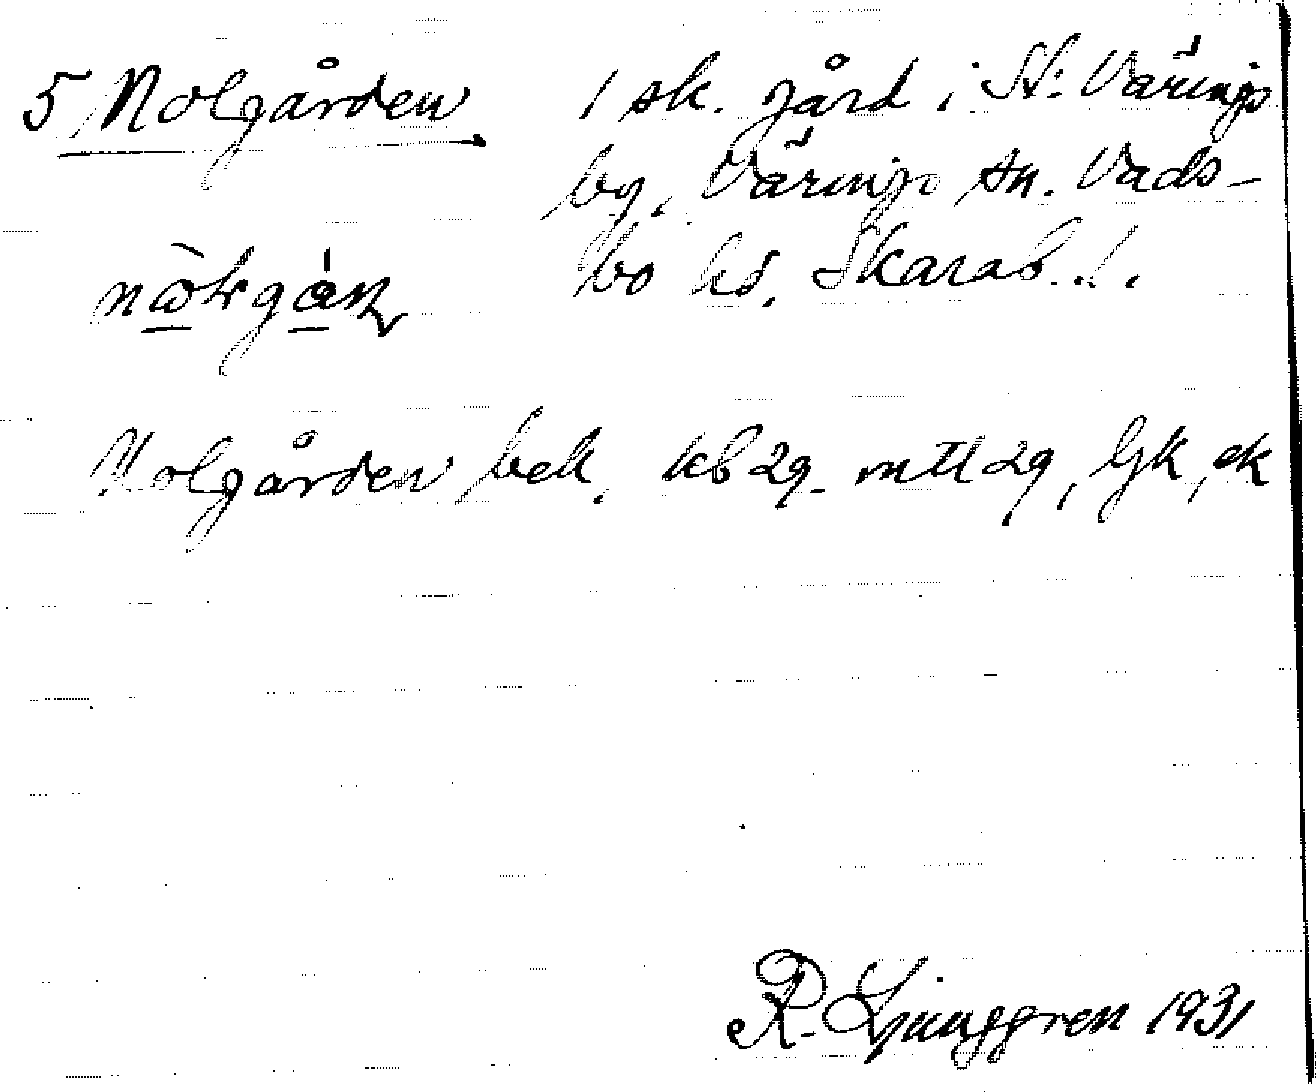 5 Nolgården 1 sk. gård i St: Värings
by, Värings sn. Vads-
bo hd. Skarab. l.
Nolgården bek. kb 29. mtl 29, Gk, ek
R. Ljunggren 1931